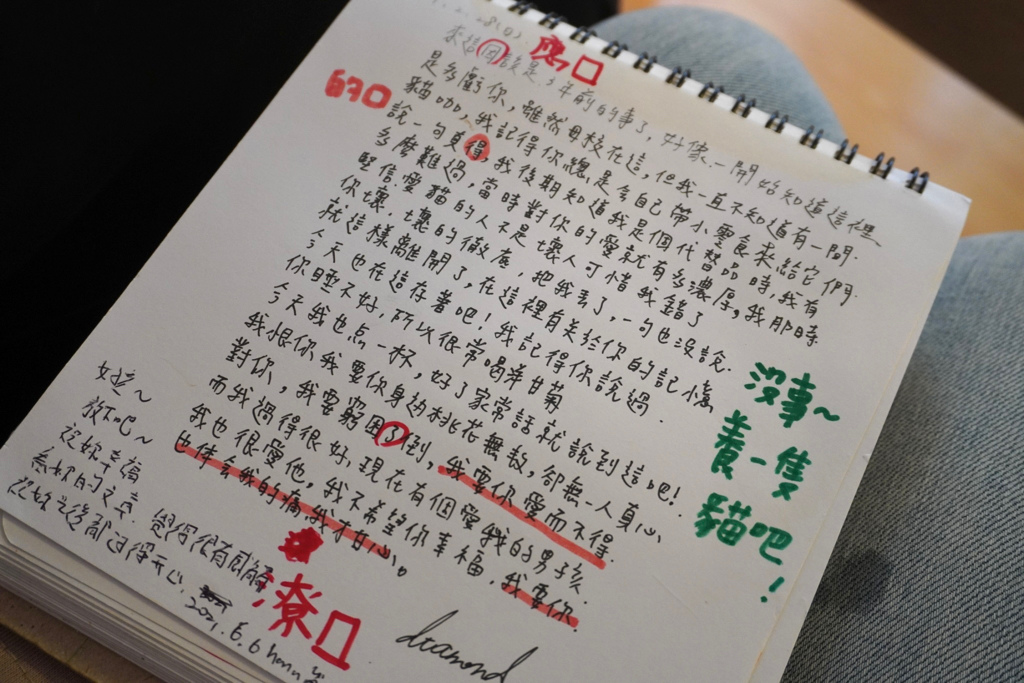 .2.28(日)
來這因該是3年前的事了,好像一開始知道這裡
是多虧你,雖然母校在這,但我一直不知道有一間
貓咖,我記得你總是會自己帶小零食來給它們.
說一句真得,我後期知道我是個代替品時,我有
多麼難過,當時對你的愛就有多濃厚,我那時
堅信愛貓的人不是壞人可惜我錯了
你壞.壞的徹底,把我丟了,一句也沒說.
就這樣離開了,在這裡有关於你的記憶
今天也在這存著吧!我記得你說過
你睡不好,所以很常喝洋甘菊
今天我也点一杯,好了家常話就說到這吧!
我恨你我要你身边桃花無数,卻無一人真心
對你,我要窮困了倒,我要你愛而不得.
而我過得很好,現在有個愛我的男孩.
我也很愛他,我不希望你幸福,我要你
也体会我的痛,我才甘心。
dtamond
應口
的口
潦口
沒事~
養一隻
貓吧!
放下吧~
祝妳幸福
看妳的文章.覺得很有感觸
祝妳之後都過得天心.
2021.6.6